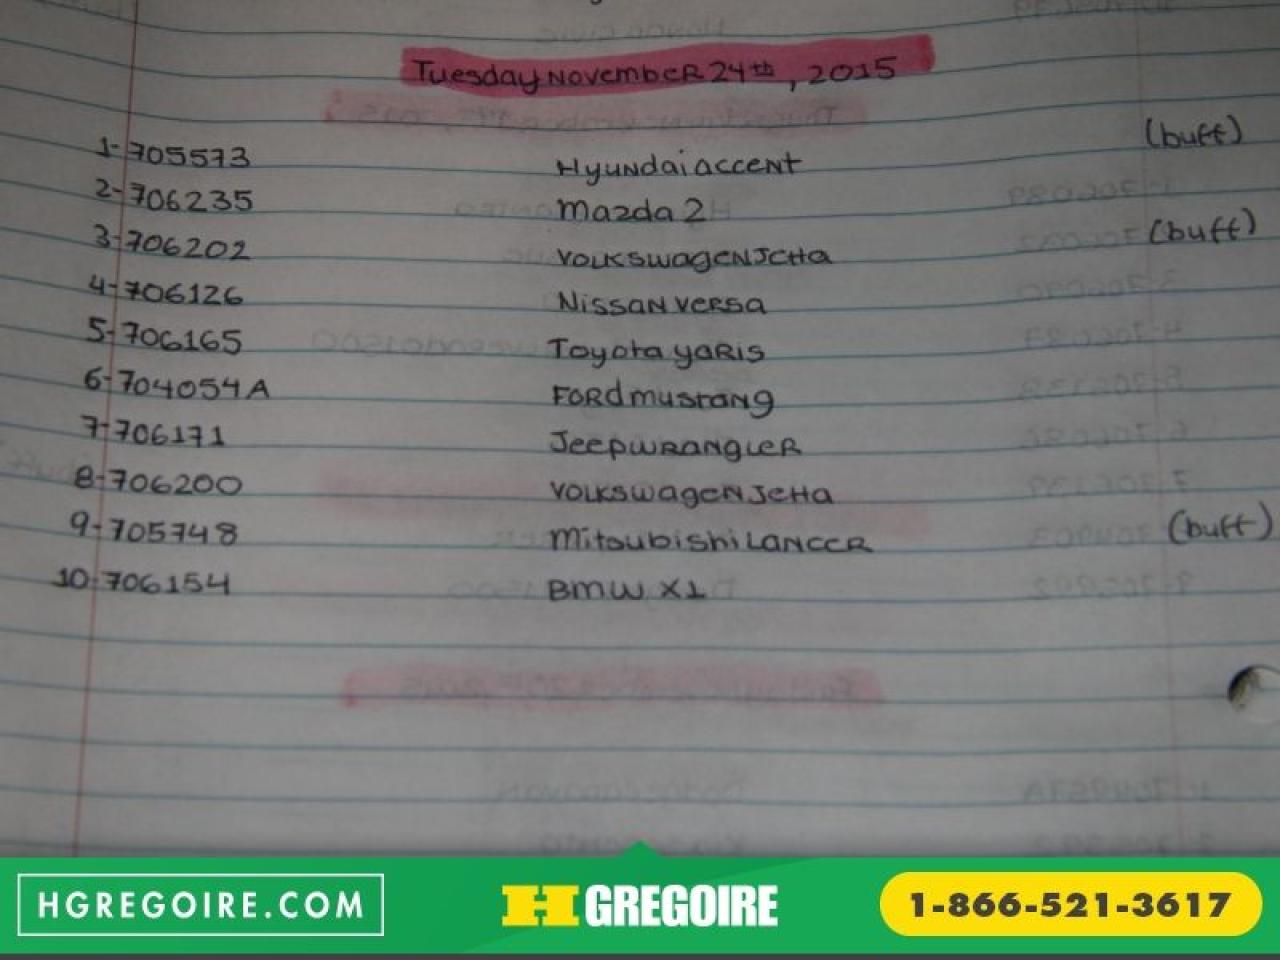 Tuesday November 24th, 2015
1-705573 Hyundai accent (buff)
2-706235 Mazda 2
3-706202 Volkswagen Jetta (buff)
4-706126 Nissan Versa
5-706165 Toyota Yaris
6-704054A Ford mustang
7-706171 Jeep wrangler
8-706200 Volkswagen Jetta
9-705748 Mitsubishi Lancer (buff)
10-706154 BMW X1
HGREGOIRE.COM H GREGOIRE 1-866-521-3617